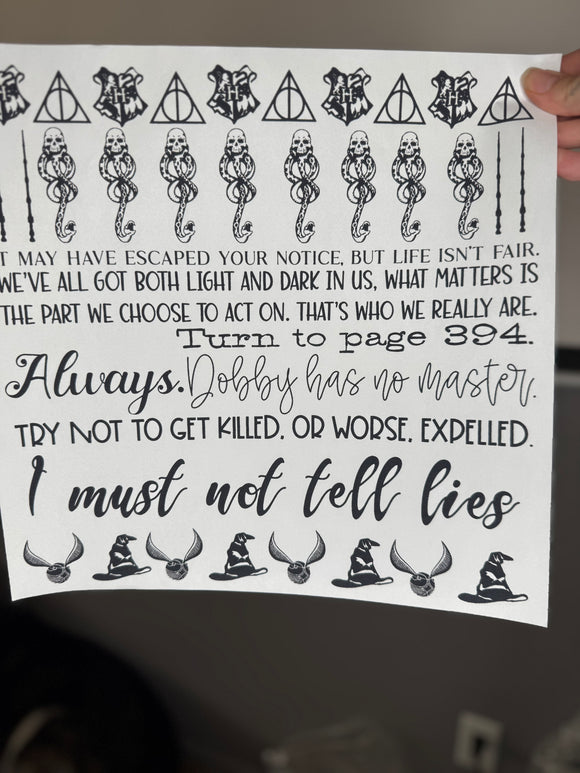 T MAY HAVE ESCAPED YOUR NOTICE, BUT LIFE ISN'T FAIR.
WE'VE ALL GOT BOTH LIGHT AND DARK IN US, WHAT MATTERS IS
THE PART WE CHOOSE TO ACT ON. THAT'S WHO WE REALLY ARE.
Turn to page 394.
Always. Dobby has no master.
TRY NOT TO GET KILLED. OR WORSE, EXPELLED.
I must not tell lies